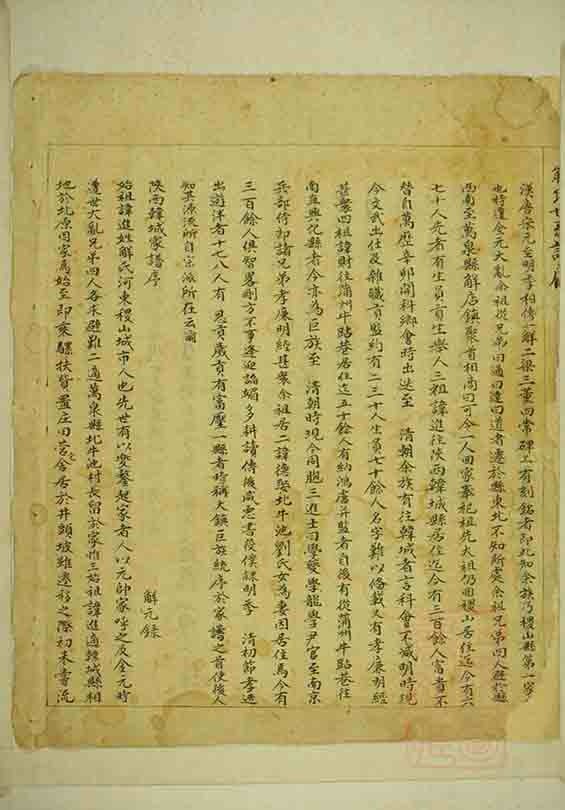 漢唐宋元至明季相傳一解二梁三董四常碑上有刻銘者即此知余族乃稷山縣第一家
也時遭金元大亂余祖從兄弟曰通曰達曰道者遷於縣東北不知所處余祖兄弟四人避於縣
西南至萬泉縣解店鎮聚首相商曰可令一人回家奉祀祖先大祖仍回稷山居住迄今有六
七十人先者有生員貢生舉人三祖諱進往陝西韓城縣居住迄今有三百餘人富者不
替自萬歷辛卯開科鄉會時出迭至 清朝余族有往韓城者言科會不減明時現
今文武出仕及雜職貢監約有二三十人生員七十餘人名字難以俻載又有孝廉明經
甚眾四祖諱財往蒲州牛跕巷居住迄五十餘人有納鴻臚并監者自後有從蒲州牛跕巷往
南直興化縣者今亦為巨族至 清朝時現今同胞三進士司學夔學龍學尹官至南京
兵部侍郎諸兄弟孝廉明經甚衆余祖居二諱德娶北牛池劉氏女為妻因居住焉今有
三百餘人俱智畧剛方不事逢迎謟媚多耕讀傳後咸悉書役僕隸明季 清初節孝迊
出遊泮者十七八人有 恩貢歲貢有富壓一縣者時稱大鎮巨族統序於家譜之首使後人
知其源淡所自宗派所在云爾
解元錄
陝西韓城家譜序
始祖諱進姓解氏河東稷山城市人也先世有以變騫起家者人以元帥家呼之及金元時
遭世大亂兄弟四人各求避難二適萬泉縣北牛池村長留於家惟三始祖諱進適韓城縣相
地於北原因家焉始至即乘騾扶貲置庄田营舍居於井頭坡雖遷移之際初未嘗流